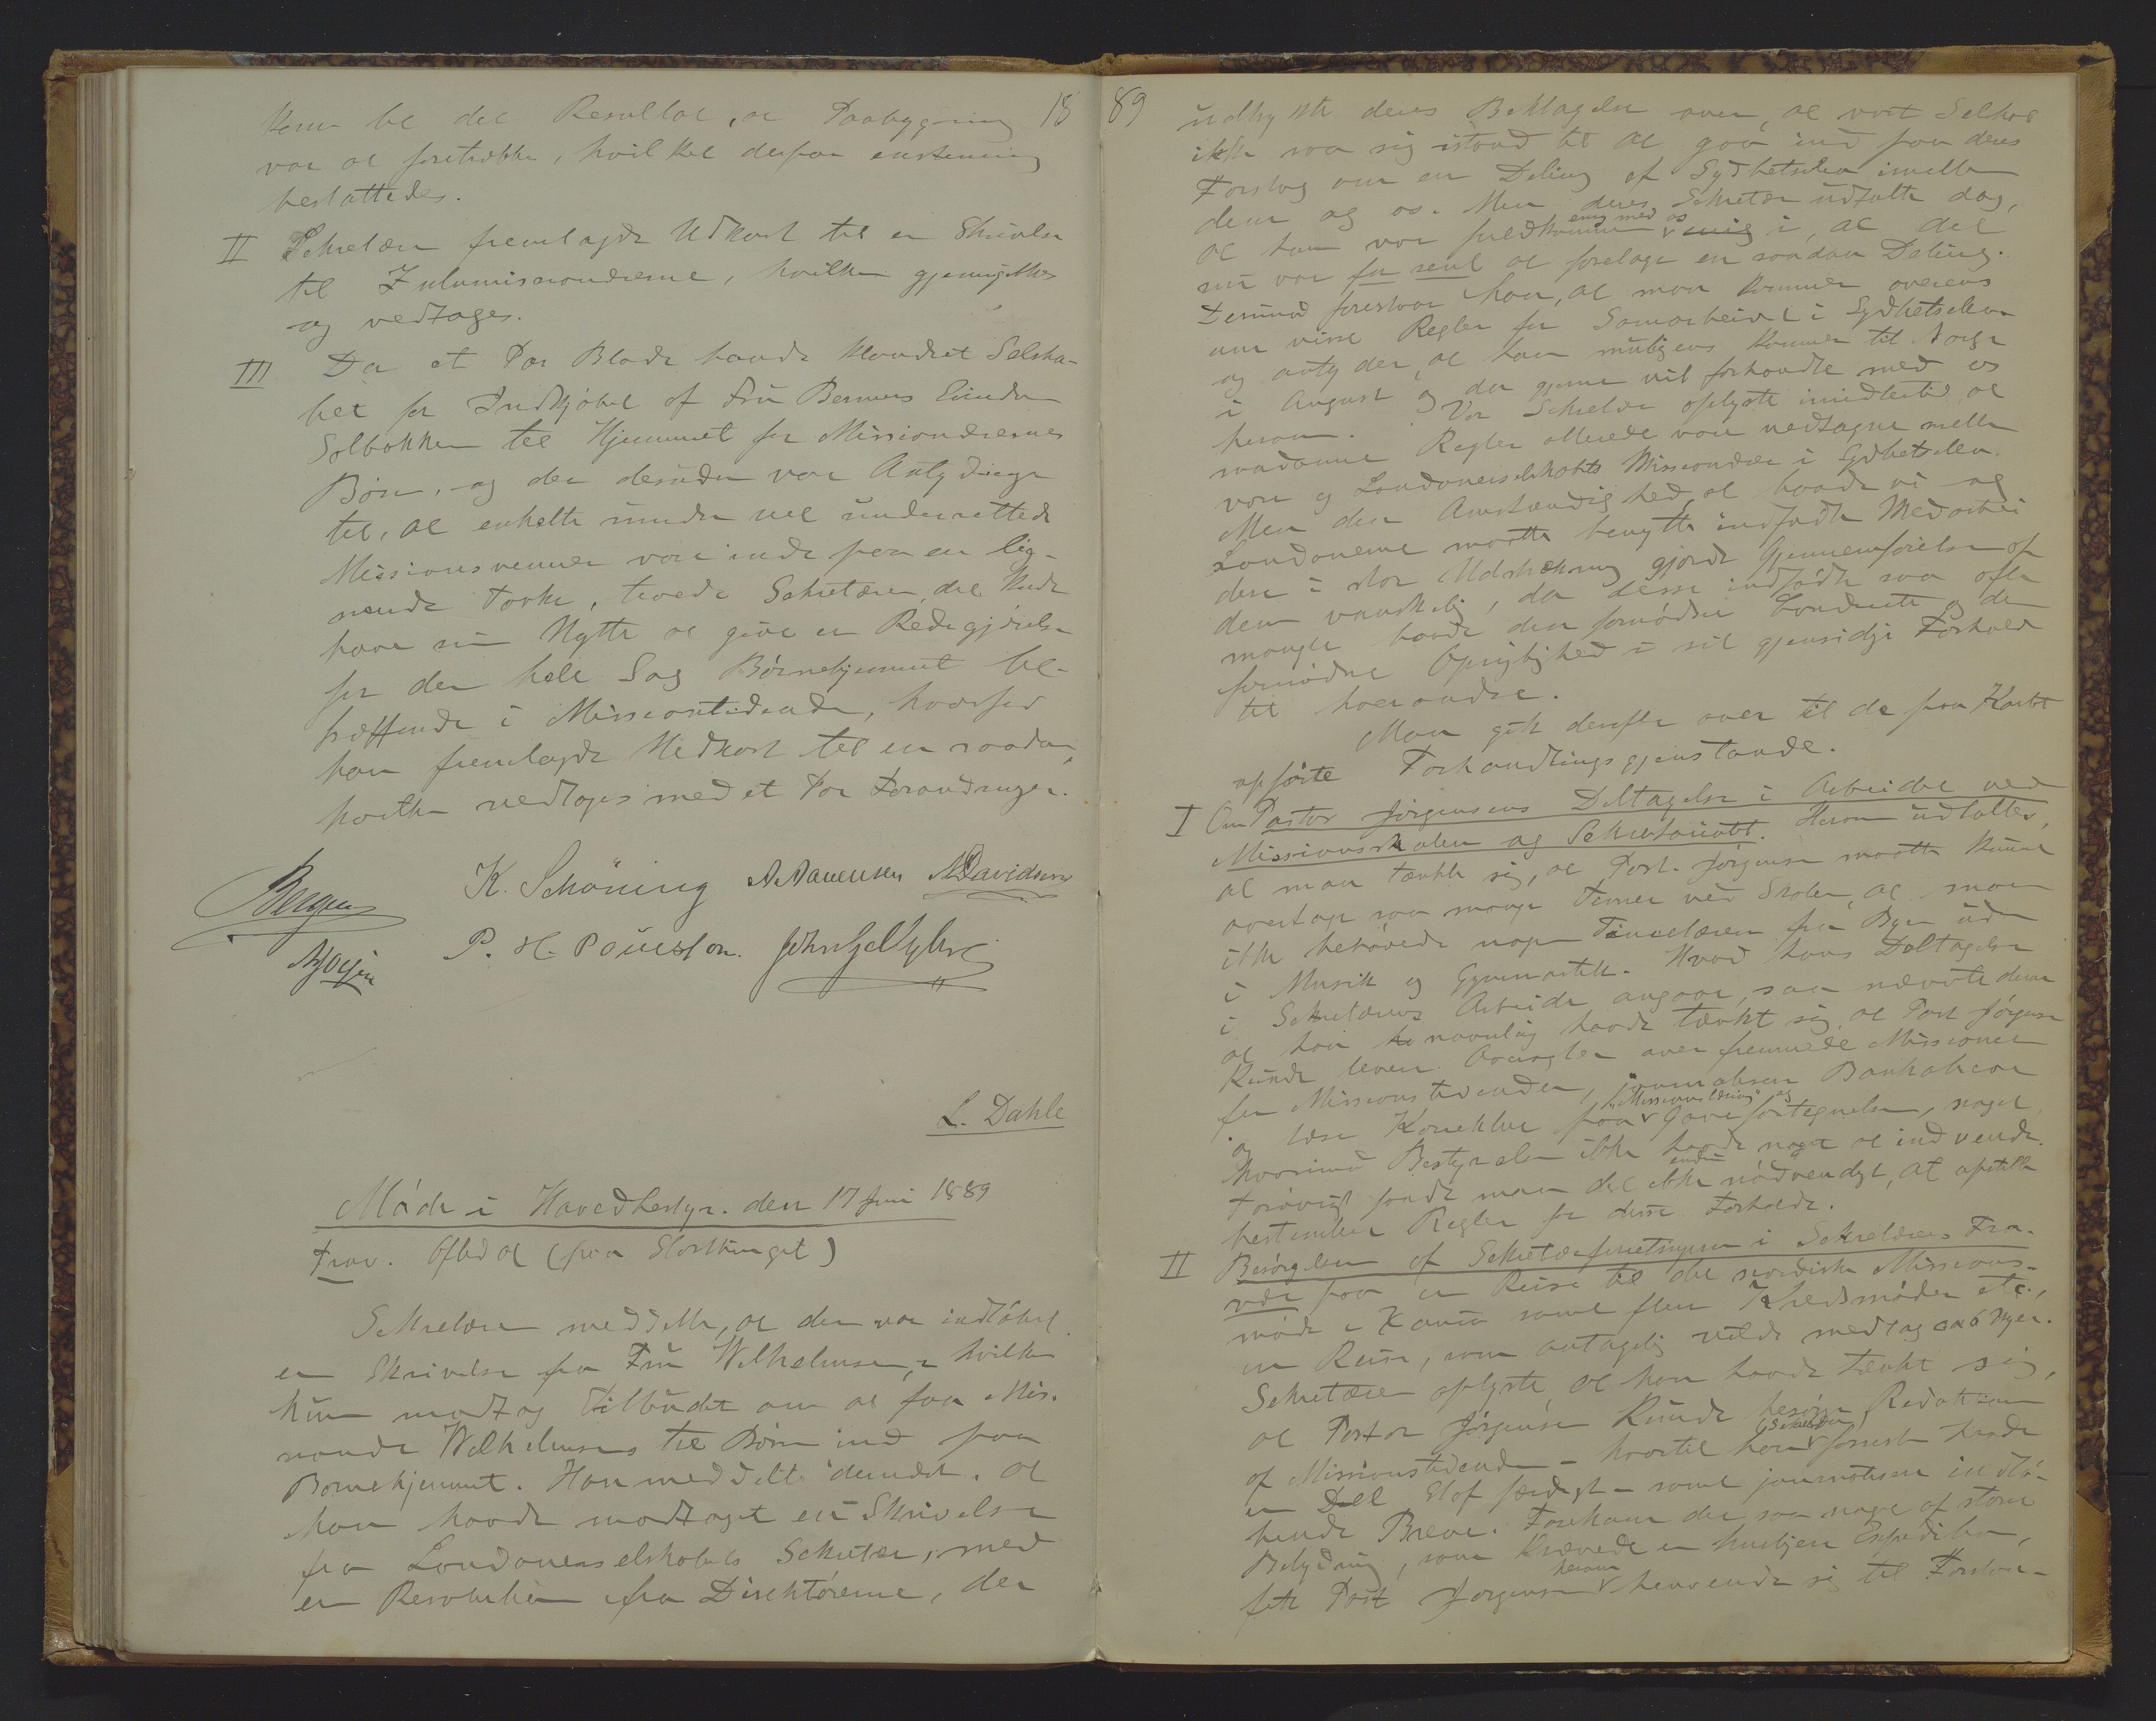 18
kom til det Resultat, at Paabygning
var at foretrække, hvilket derpaa enstemmig
besluttedes.
II Sekretæren fremlagde Udkast til en Skrivelse
til Zulumissionærerne, hvilken gjennemgikkes
og vedtoges.
III Da et Par Blade havde klandret Selska-
bet for Indkjøbet af Fru Berners Eiendom
Solbakken til Hjemmet for Missionærernes
Børn, og der desuden var Antydninger
til, at enkelte mindre vel underrettede
Missionsvenner vare inde paa en lig-
nende Tanke, troede Sekretæren, det kunde
have sin Nytte at give en Redegjørelse
for den hele Sag Børnehjemmet be-
træffende i Missionstidende, hvorfor
han fremlagde Udkast til en saadan,
hvilken vedtoges med et Par Forandringer.
K. Schöning A Aanensen Davidsen
P. H. Poulsson.
L. Dahle
Møde i Hovedbestyr. den 17 Juni 1889
Frav. Oftedal (paa Storthinget)
Sekretæren meddelte, at der var indløbet
en Skrivelse fra Fru Wilhelmsen, i hvilken
hun modtog Tilbudet om at faa Mis.
nær Wilhelmsens til Børn ind paa
Børnehjemmet. Han meddelte desuden, at
han havde modtaget en Skrivelse
fra Londonerselskabets Sekretær, med
en Resolution fra Direktørerne, der
89
udtrykte deres Beklagelse over, at vort Selskab
ikke saa sig istand til at gaa ind paa deres
Forslag om en Deling af Sydbetsileo imellem
dem og os. Men deres Sekretær udtalte dog,
at han var fuldkommen enig med os i, at det
nu var for sent at foretage en saadan Deling.
Derimod foreslaar han, at man kommer overens
om visse Regler for Samarbeidet i Sydbetsileo
og antyder, at han muligens kommer til Norge
i August og da gjerne vil forhandle med os
herom. Vor Sekretær oplyste imidlertid, at
saadanne Regler allerede vare vedtagne mellem
vore og Londonerselskabets Missionærer i Sydbetsileo.
Men den Omstændighed, at baade vi og
Londonerne maatte benytte indfødte Medarbei
dere i stor Udstrækning gjorde Gjennemførelsen af
dem vanskelig, da disse indfødte saa ofte
mangle baade den fornødne Conduite og den
fornødne Oprigtighed i sit gjensidige Forhold
til hverandre.
Man gik derefter over til de paa Kartet
opførte Forhandlingsgjenstande.
I Om Pastor Jørgensens Deltagelse i Arbeidet ved
Missionsskolen og Sekretariatet. Herom udtaltes,
at man tænkte sig, at Past. Jørgensen maatte kunne
overtage saa mange Timer ved Skolen, at man
ikke behøvede nogen Timelærer fra Byen uden
i Musik og Gymnastik. Hvad hans Deltagelse
i Sekretærens Arbeide angaar, saa nævnte denne
at han navnlig havde tænkt sig, at Past Jørgensen
kunde levere Oversigter over fremmede Missioner
for Missionstidenden, journalisere Bankobreve
og læse Korrektur paa "Missionslæsning" og Gavefortegnelsen, noget
hvorimod Bestyrelsen ikke havde noget at indvende.
Forøvrigt fandt man det ikke endnu nødvendigt, at opstille
bestemte Regler for disse Forholde.
II Besørgelsen af Sekretærforretningerne i Sekretærens Fra-
vær paa en Reise til det nordiske Missions-
møde i Xania samt flere Kredsmøder etc.,
en Reise, som antagelig vilde medtage ca 6 Uger.
Sekretæren oplyste at han havde tænkt sig,
at Pastor Jørgensen kunde besørge Redaktionen
af Missionstidende – hvortil han (Sekretæren) forresten havde
en Del Stof færdigt – samt journalisere indlø-
bende Breve. Forekom der saa noget af større
Betydning, som krævede en hurtigere Expedition,
fik Past Jørgensen herom henvende sig til Forstan-